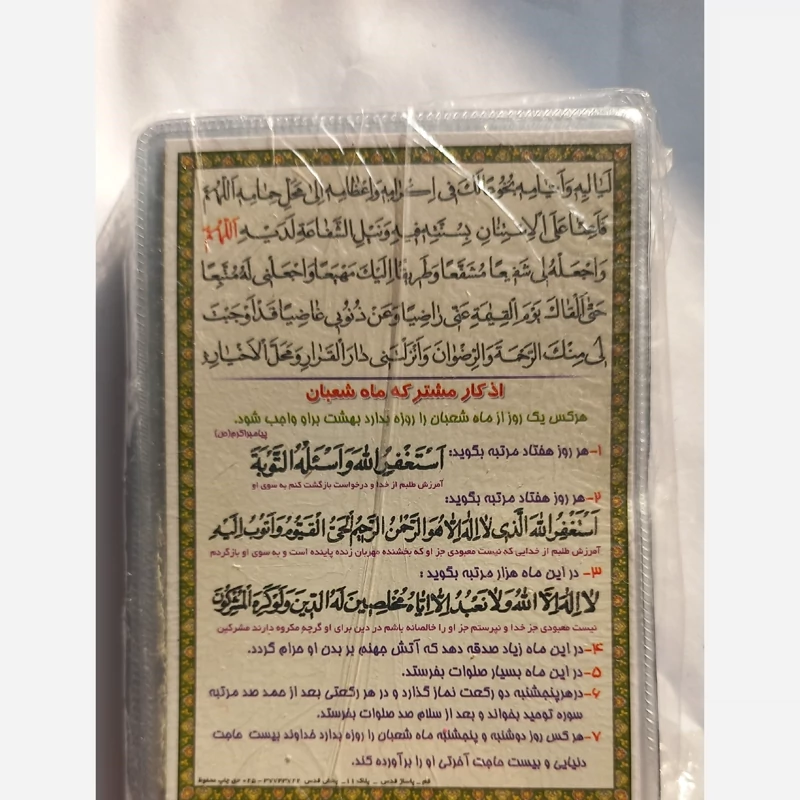 لَيَالِيهِ وَاَيَّامِهِ بُخُوعًا لَكَ فِى اِكْرَامِهِ وَاِعْظَامِهِ اِلَى مَحَلِّ حِمَامِهِ اَللّٰهُمَّ
فَاَعِنَّا عَلَى الْاِسْتِنَانِ بِسُنَّتِهِ فِيهِ وَنَيْلِ الشَّفَاعَةِ لَدَيْهِ اَللّٰهُمَّ
وَاجْعَلْهُ لِى شَفِيعًا مُشَفَّعًا وَطَرِيقًا اِلَيْكَ مَهْيَعًا وَاجْعَلْنِى لَهُ مُتَّبِعًا
حَتَّى اَلْقَاكَ يَوْمَ الْقِيٰمَةِ عَنِّى رَاضِيًا وَعَنْ ذُنُوبِى غَاضِيًا قَدْ اَوْجَبْتَ
لِى مِنْكَ الرَّحْمَةَ وَالرِّضْوَانَ وَاَنْزَلْتَنِى دَارَ الْقَرَارِ وَمَحَلَّ الْاَخْيَارِ
اذکار مشترکه ماه شعبان
هرکس یک روز از ماه شعبان را روزه بدارد بهشت براو واجب شود.
پیامبراکرم(ص)
۱-هر روز هفتاد مرتبه بگوید: اَسْتَغْفِرُ اللهَ وَاَسْئَلُهُ التَّوْبَةَ
آمرزش طلبم از خدا و درخواست بازگشت کنم به سوی او
۲- هر روز هفتاد مرتبه بگوید:
اَسْتَغْفِرُ اللهَ الَّذِى لَا اِلٰهَ اِلَّا هُوَ الرَّحْمٰنُ الرَّحِيمُ الْحَىُّ الْقَيُّومُ وَاَتُوبُ اِلَيْهِ
آمرزش طلبم از خدایی که نیست معبودی جز او که بخشنده مهربان زنده پاینده است و به سوی او بازگردم
۳- در این ماه هزار مرتبه بگوید :
لَا اِلٰهَ اِلَّا اللهُ وَلَا نَعْبُدُ اِلَّا اِيَّاهُ مُخْلِصِينَ لَهُ الدِّينَ وَلَوْ كَرِهَ الْمُشْرِكُونَ
نیست معبودی جز خدا و نپرستم جز او را خالصانه باشم در دین برای او گرچه مکروه دارند مشرکین
۴-در این ماه زیاد صدقه دهد که آتش جهنم بر بدن او حرام گردد.
۵- در این ماه بسیار صلوات بفرستد.
۶-درهرپنجشنبه دو رکعت نماز گذارد و در هر رکعتی بعد از حمد صد مرتبه
سوره توحید بخواند و بعد از سلام صد صلوات بفرستد.
۷-هر کس روز دوشنبه و پنجشنبه ماه شعبان را روزه بدارد خداوند بیست حاجت
دنیایی و بیست حاجت آخرتی او را برآورده کند.
قم_پاساژ قدس _ پلاک ۱۱_ پخش قدس ۳۷۷۴۳۷۲۲-۰۲۵ حق چاپ محفوظ